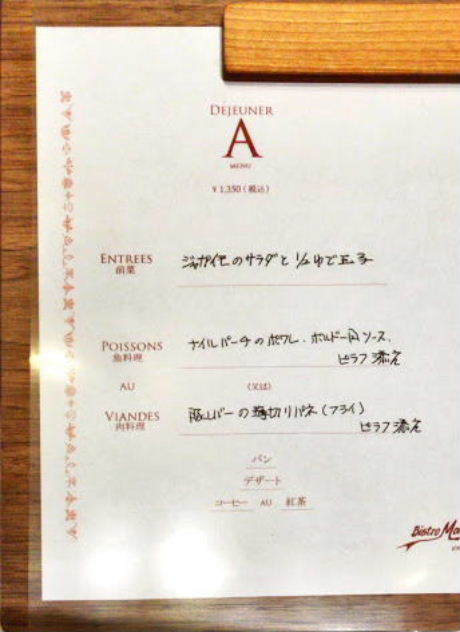 DEJEUNER
A
MENU
¥1,350（税込）
ENTREES
前菜
ジャガイモのサラダと 1/2ゆで玉子
POISSONS
魚料理
ナイルパーチのポワレ・ボルドー風ソース、
ピラフ添え
AU
（又は）
VIANDES
肉料理
豚レバーの薄切りパネ（フライ）
ピラフ添え
パン
デザート
コーヒー AU 紅茶
Bistro